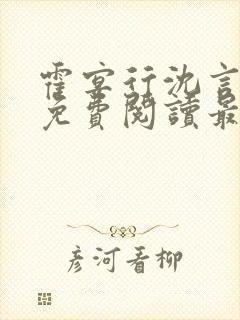 霍宴行沈言
免費閱讀最
彥河看柳